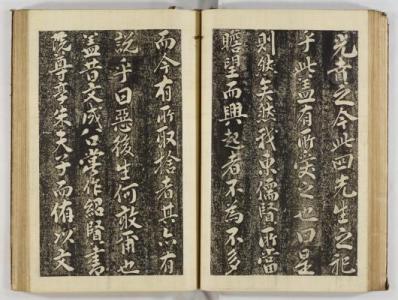 先者之今此四先生之祀
乎此盖有所受之也曰是
則然矣然我東儒賢所當
瞻望而興起者不為不多
而今有所取捨者其亦有
說乎曰惡後生何敢爾也
盖昔文成公嘗作紹賢書
院尊享朱夫子而侑以文